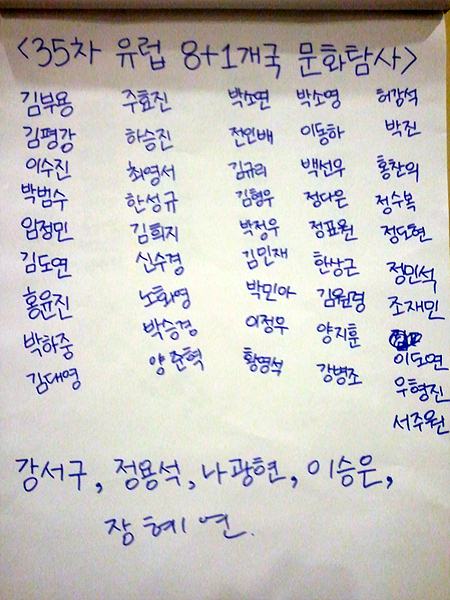 <35차 유럽 8+1개국 문화탐사>
김부용 주효진 박소연 박소영 허강석
김평강 하승진 전인배 이동하 박진
이수진 최영서 김규리 백선우 홍찬의
박범수 한성규 김형우 정다은 정수복
임정민 김희지 박정우 정표원 정도현
김도연 신수경 김민재 한상근 정민석
홍윤진 노화영 박민아 김원경 조재민
박하중 박승경 이정우 양지훈 이도연
김대영 양준혁 황영석 강병조 우형진
서주원
강서구, 정용석, 나광현, 이승은,
장혜연.